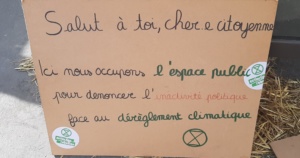 Salut à toi, cher e citoyenne
Ici nous occupons l'éspace public
pour denoncer l'inactivité politique
face au dérèglement climatique